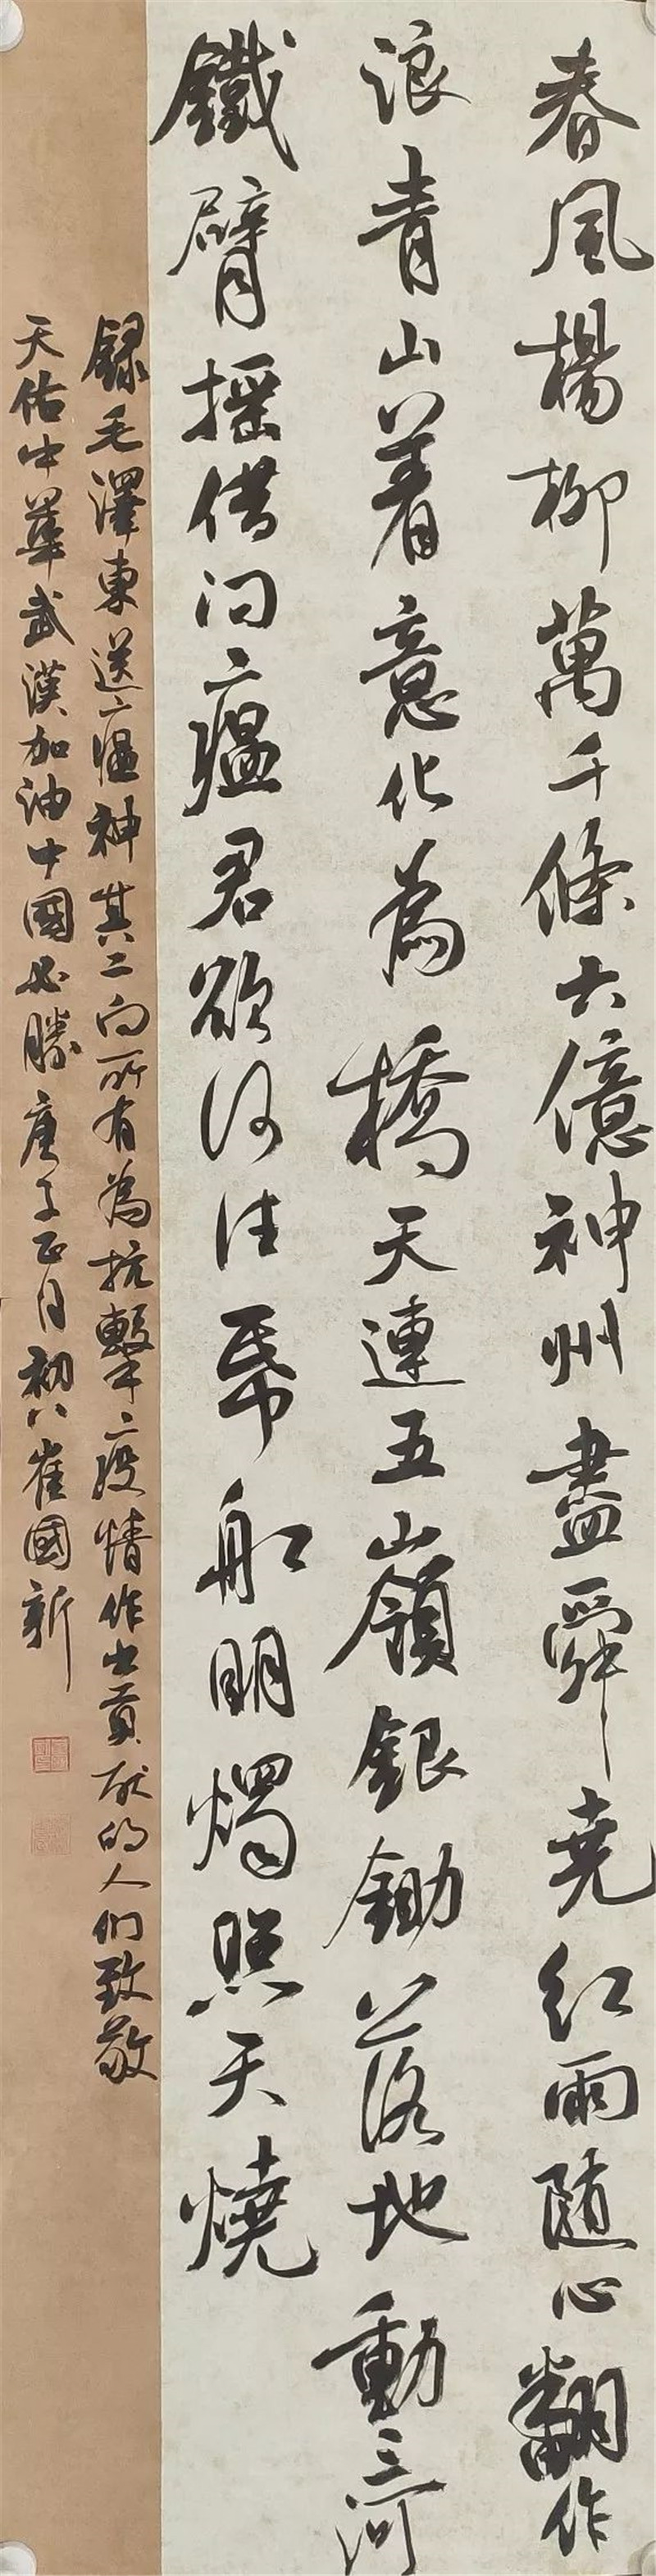 春風楊柳萬千條六億神州盡舜堯紅雨随心翻作
浪青山着意化為橋天連五嶺銀鋤落地動三河
鐵臂摇借问瘟君欲何往帋船明燭照天燒
録毛澤東送瘟神其二向所有為抗擊疫情作出貢献的人们致敬
天佑中華武漢加油中國必勝庚子正月初八崔國新